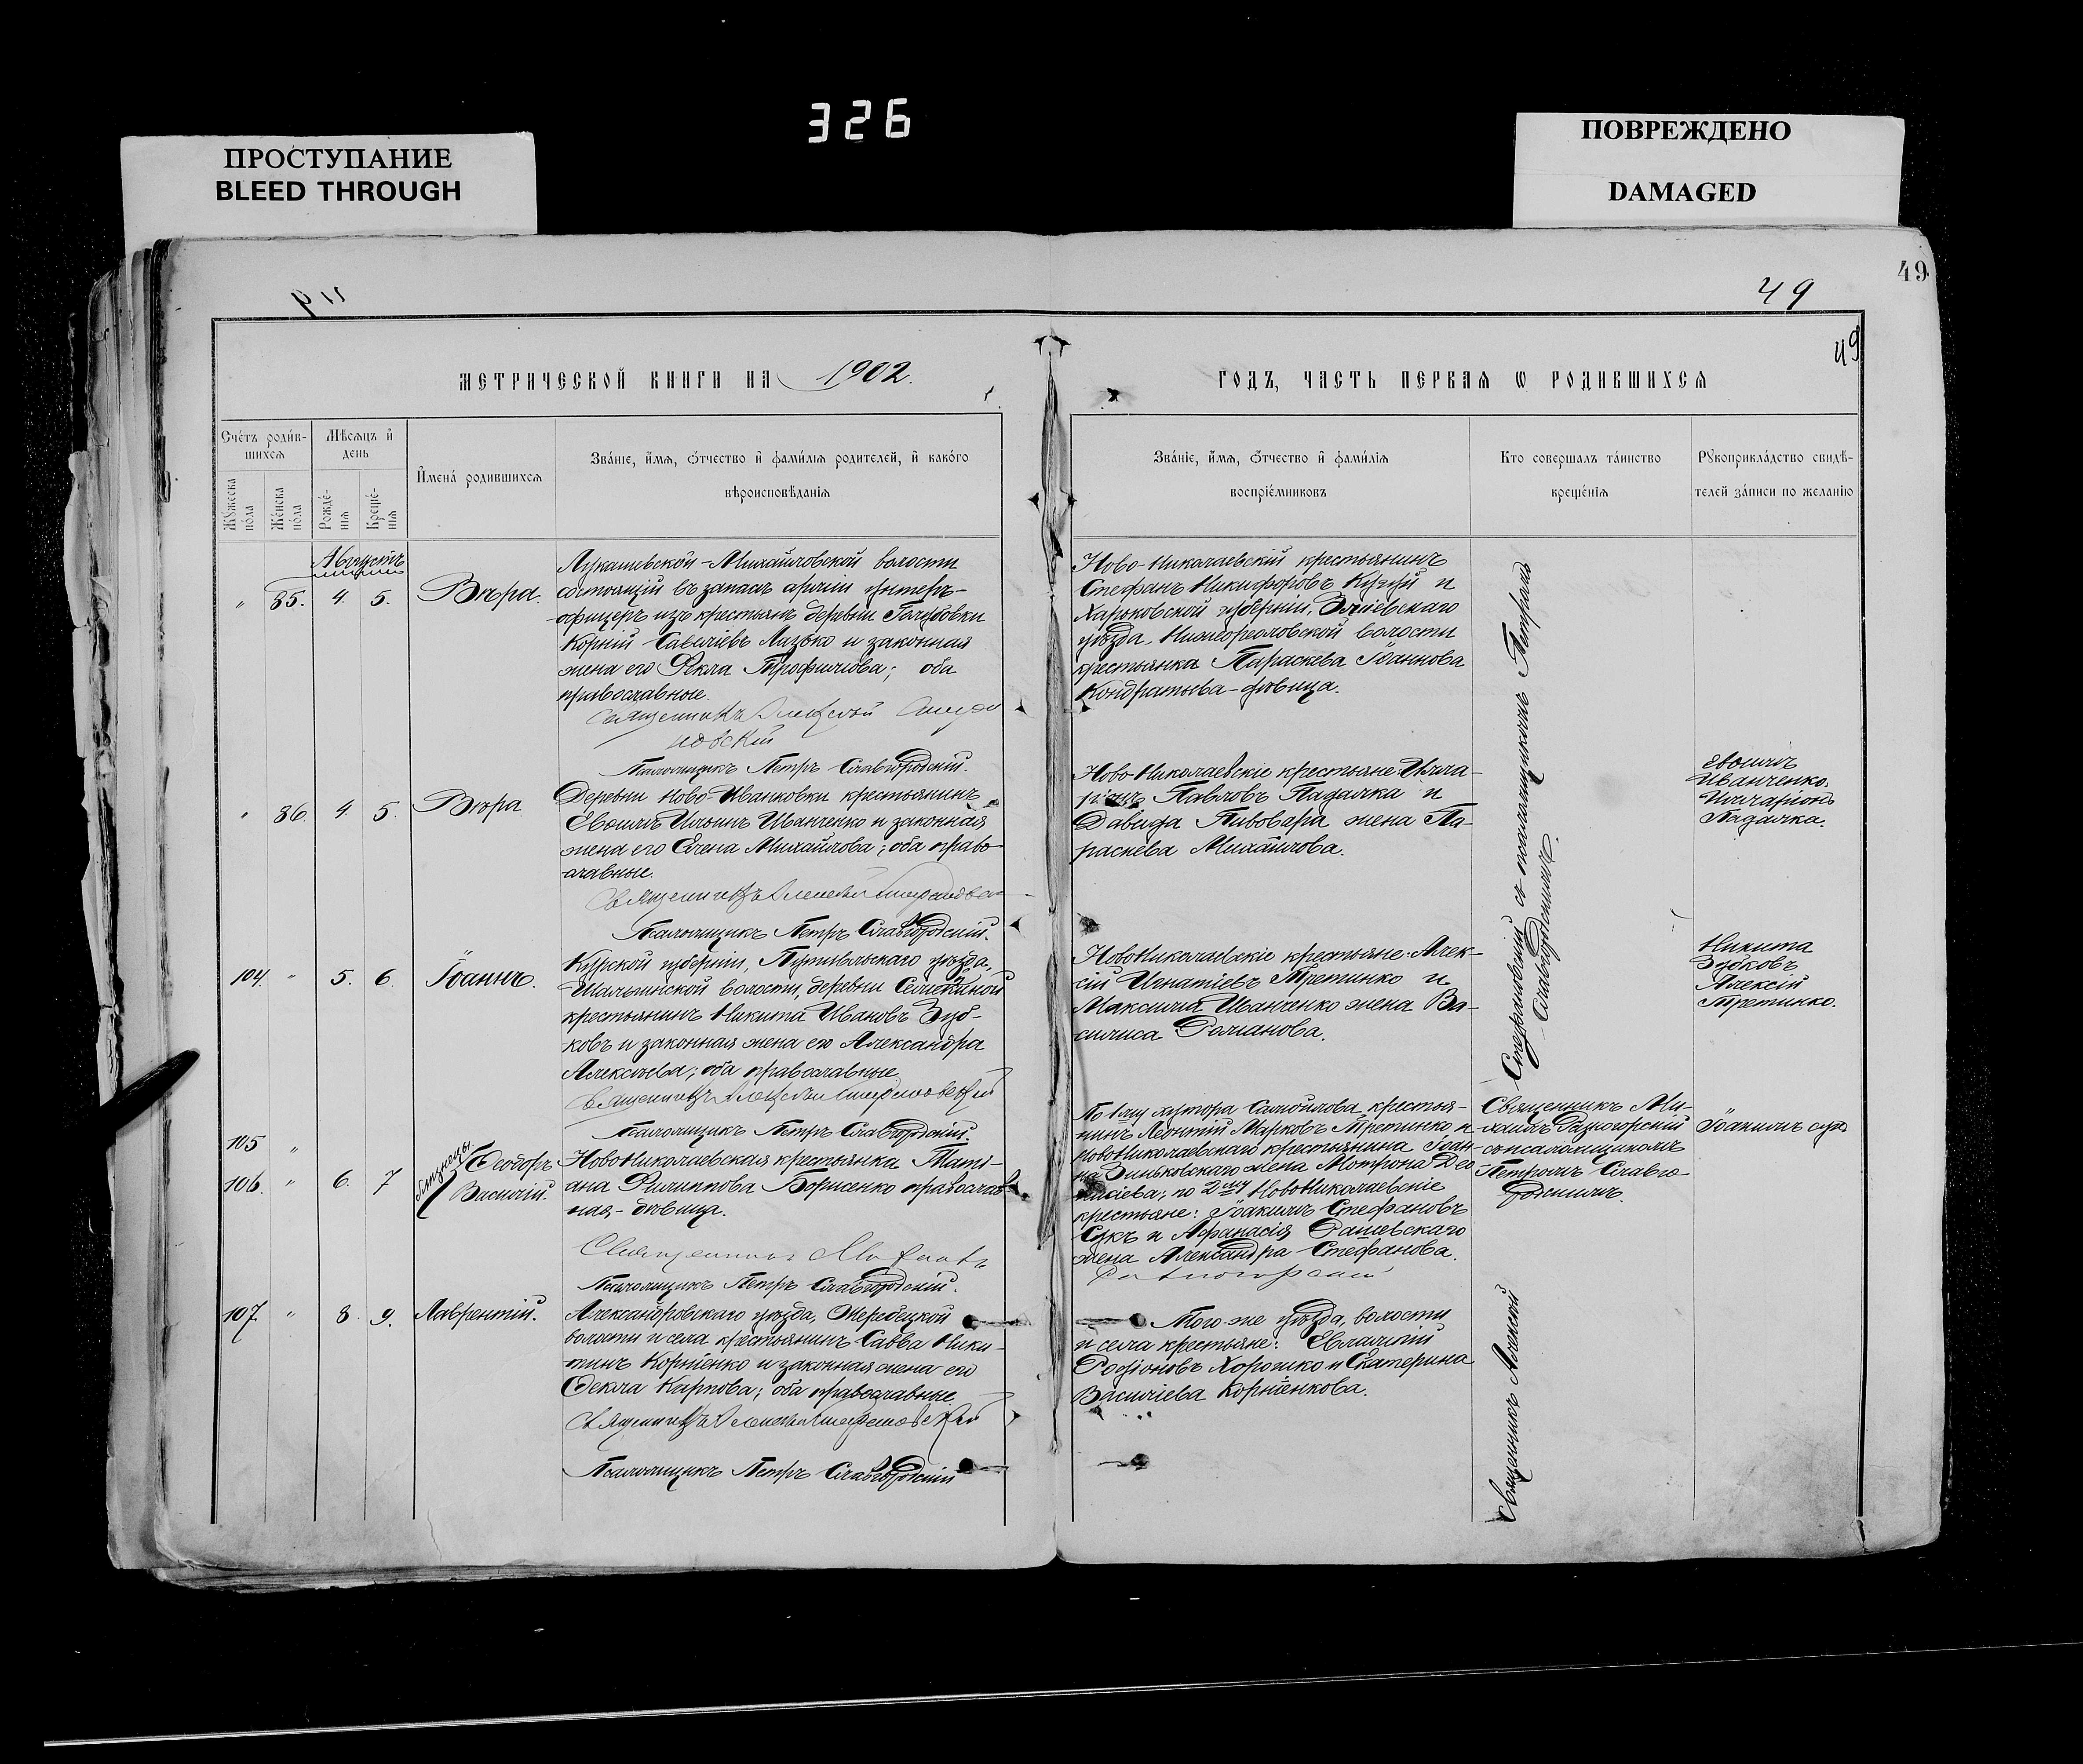 326
ПРОСТУПАНИЕ
BLEED THROUGH
ПОВРЕЖДЕНО
DAMAGED
49
49
49
МЕТРИЧЕСКОЙ КНИГИ НА 1902.
ГОДЪ, ЧАСТЬ ПЕРВАЯ Ѡ РОДИВШИХСЯ
Счетъ родив-
шихся
Мѣсяцъ и
день
Мужеска
пола
Женска
пола
Рожде-
нія
Креще-
нія
Имена родившихся
Званіе, имя, отчество и фамилія родителей, и какого
вѣроисповѣданія
Званіе, имя, отчество и фамилія
воспріемниковъ
Кто совершалъ таинство
крещенія
Рукоприкладство свидѣ-
телей записи по желанію
Августъ
" 85. 4. 5. Вѣра.
Лукашевской-Михайловской волости
состоящій въ запасѣ арміи унтеръ-
офицеръ изъ крестьянъ деревни Голубовки
Корній Савиліевъ Лазько и законная
жена его Ѳекла Трофимова; оба
православные.
Священникъ Алексій
Псаломщикъ Петръ Славгородскій.
Ново-Николаевскій крестьянинъ
Стефанъ Никифоровъ и
Харьковской губерніи, Зміевскаго
уѣзда, волости
крестьянка Параскева Іоаннова
Кондратьева-дѣвица.
" 86. 4. 5. Вѣра.
Деревни Ново-Ивановки крестьянинъ
Евѳимъ Ильинъ Иванченко и законная
жена его Елена Михайлова; оба право-
славные.
Священникъ Алексій
Псаломщикъ Петръ Славгородскій.
Ново-Николаевскіе крестьяне: Илла-
ріонъ Павловъ Падалка и
Давида Пивовара жена Па-
раскева Михайлова.
Евѳимъ
Иванченко.
Илларіонъ
Падалка.
104. " 5. 6. Іоаннъ.
Курской губерніи, Путивльскаго уѣзда,
волости, деревни
крестьянинъ Никита Ивановъ Зуб-
ковъ и законная жена его Александра
Алексѣева; оба православные
Священникъ Алексій Стефановскій
Псаломщикъ Петръ Славгородскій.
НовоНиколаевскіе крестьяне: Алек-
сій Игнатіевъ Третинко и
Максима Иванченко жена Ва-
силиса Романова.
Стефановскій съ псаломщикомъ Петромъ
Славгородскимъ.
Никита
Зубковъ
Алексій
Третинко.
105 "
106. " 6. 7 близнецы. Ѳеодоръ
Василій.
НовоНиколаевская крестьянка Тати-
ана Филиппова Борисенко православ-
ная-дѣвица.
Священникъ Михаилъ
Псаломщикъ Петръ Славгородскій.
По 1му хутора Самойлова крестья-
нинъ Леонтій Марковъ Третинко и
НовоНиколаевскаго крестьянина Іоан-
на Зиньковскаго жена Мотрона Део-
нисіева; по 2му НовоНиколаевскіе
крестьяне: Іоакимъ Стефановъ
Сукъ и Аѳанасія жена
Александра Стефанова.
Священникъ Ми-
хаилъ Разногорскій
съ псаломщикомъ
Петромъ Славго-
родскимъ.
Іоакимъ сукъ
107. " 8. 9. Лаврентій.
Александровскаго уѣзда, Жеребецкой
волости и села крестьянинъ Савва Ники-
тинъ Корніенко и законная жена его
Ѳекла Карпова; оба православные.
Священникъ Алексій Стефановскій
Псаломщикъ Петръ Славгородскій
Того-же уѣзда, волости
и села крестьяне: Евлампій
Родіоновъ Хорошко и Екатерина
Василіева Корніенкова.
Священникъ Алексій